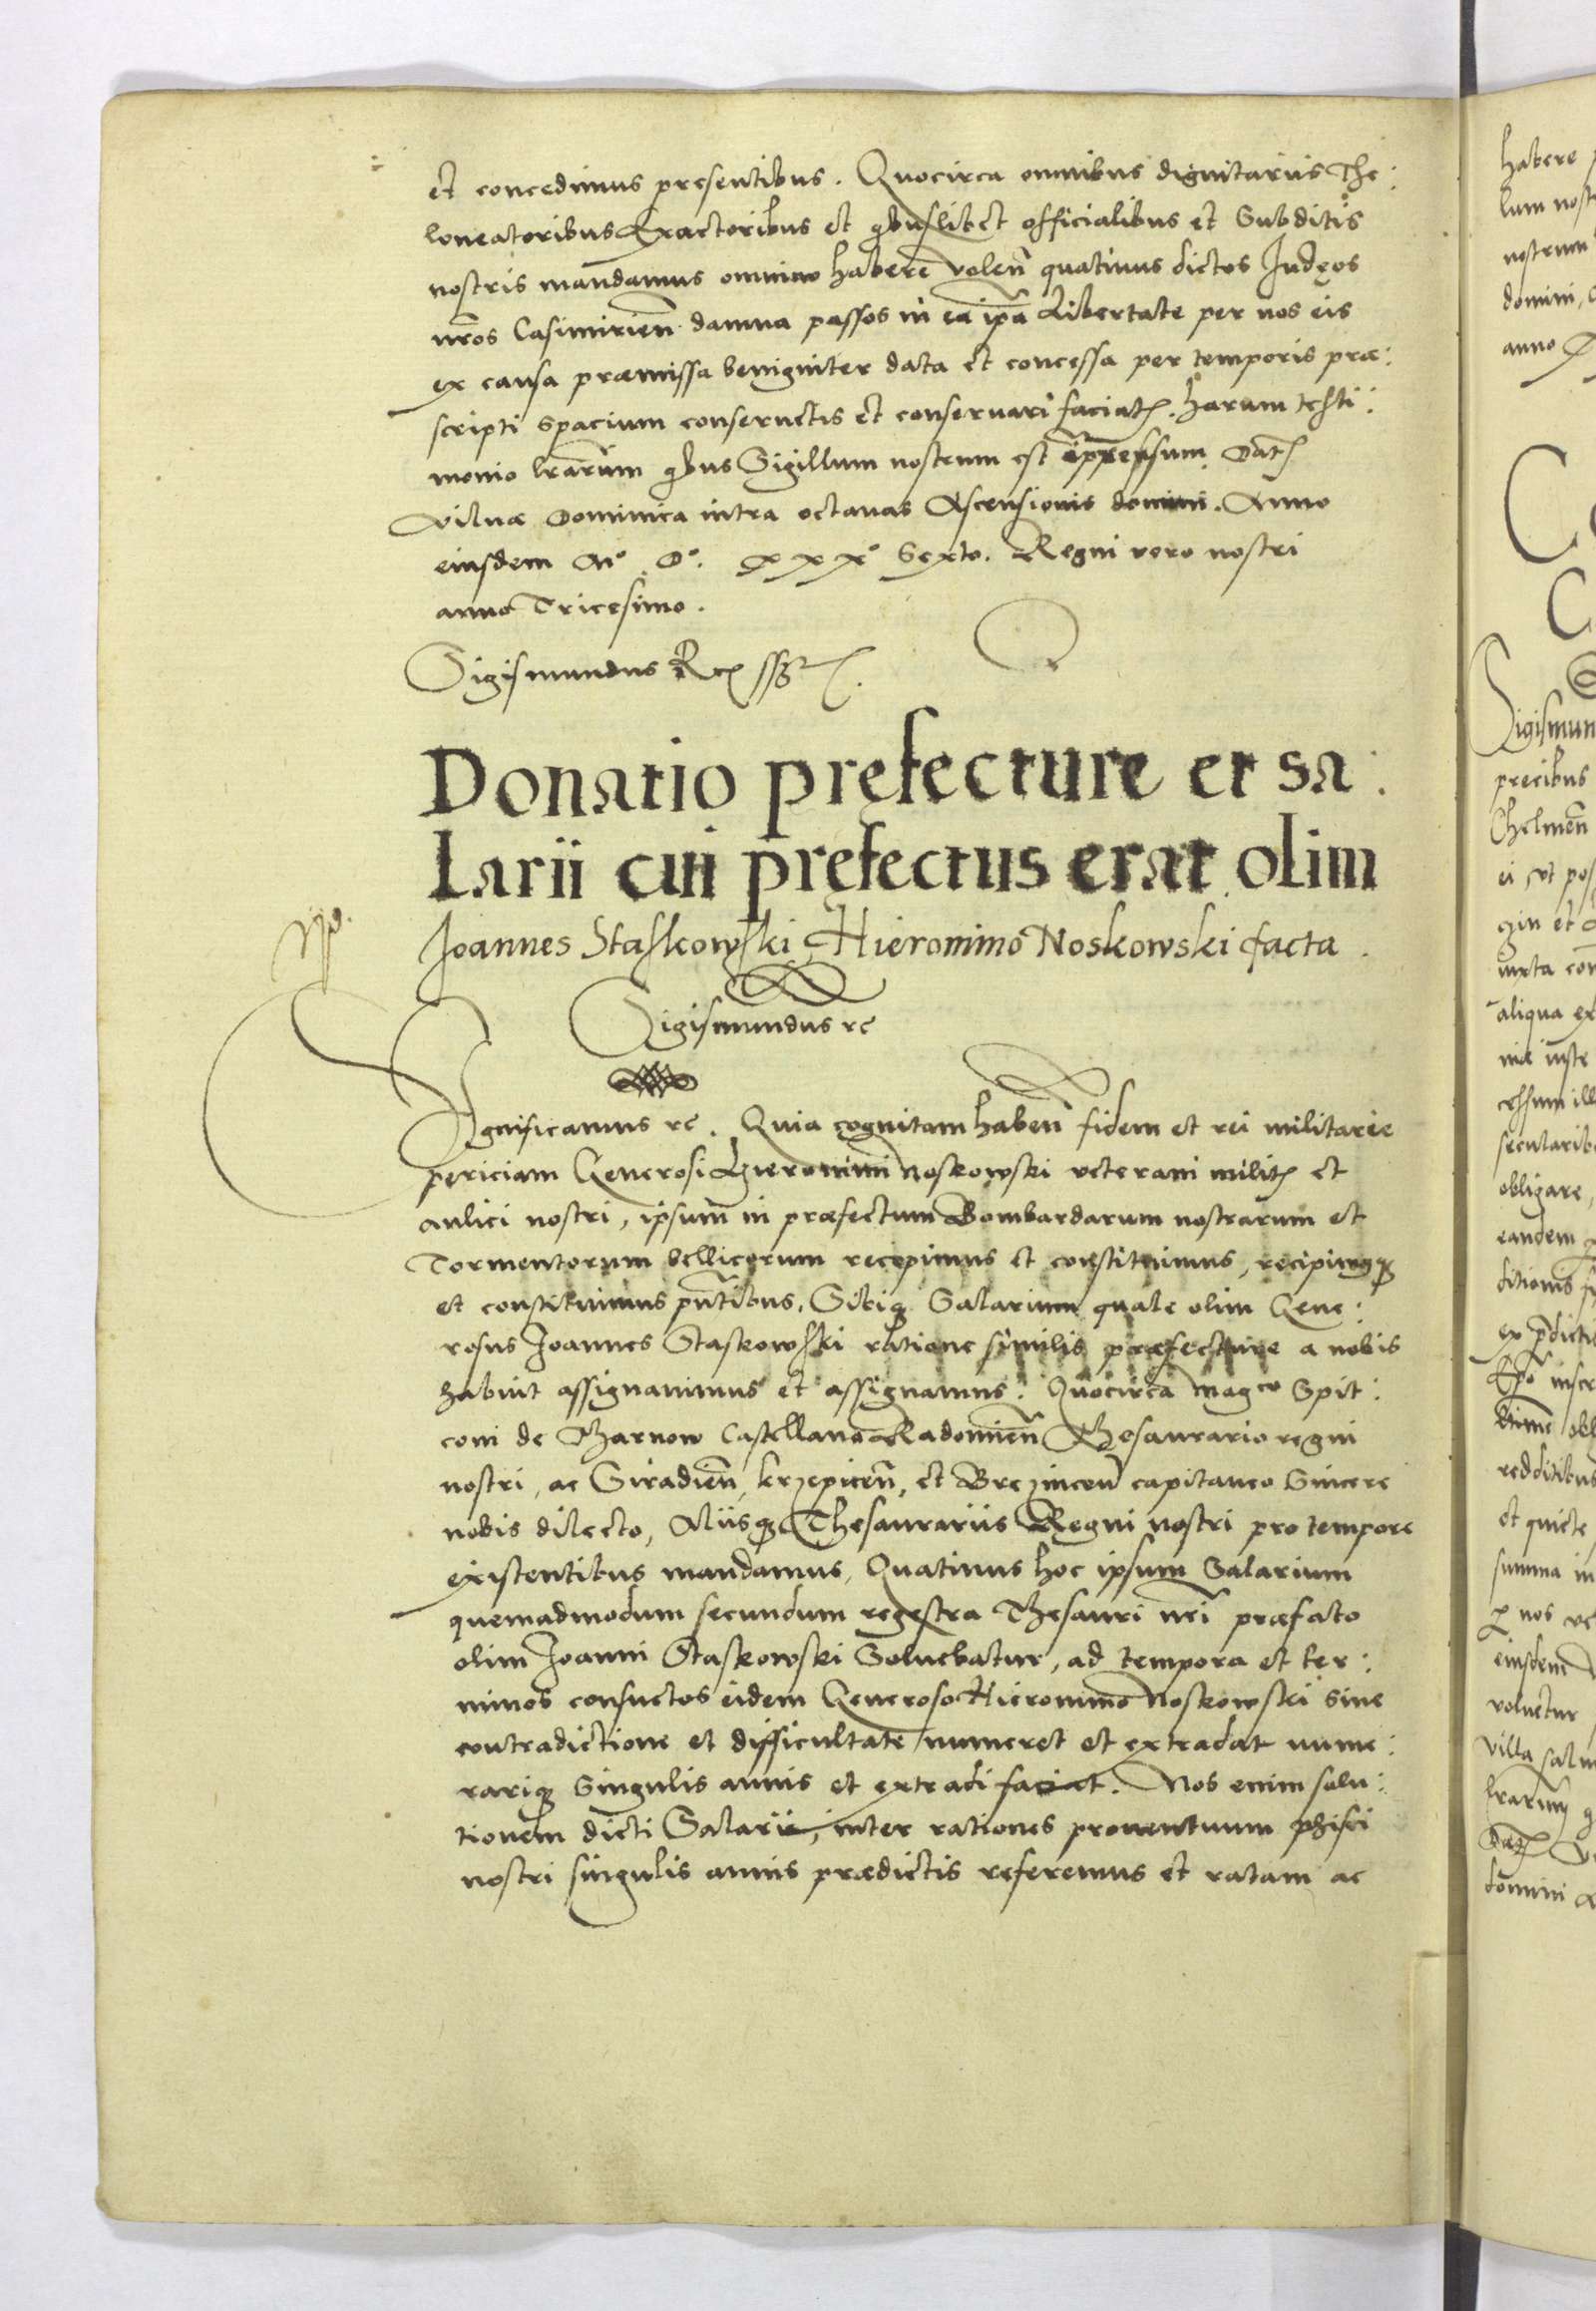 et concedimus presentibus. Quocirca omnibus dignitariis The:
loneatoribus Exactoribus et qbuslibet officialibus et Subditis
nostris mandamus omnino habere volen̄ quatinus dictos Judęos
nr̄os Casimirien̄ damna passos in ea ip̄a Libertate per nos eis
ex causa præmissa benigniter data et concessa per temporis præ:
scripti spacium conseruetis et conseruari faciatꝭ. harum testi:
monio lr̄arum qbus Sigillum nostrum est impressum. Datꝭ
Vilnæ Dominica intra octauas Ascensionis domini. Anno
eiusdem Mº. Dº. xxxº Sexto. Regni vero nostri
anno Tricesimo.
Sigismundus Rex sst
Donatio prefecture et sa:
larii cui pręfectus erat olim
Joannes Staskowski, Hieronimo Noskowski facta.
Sigismundus rc
Significamus rc. Quia cognitam haben̄ fidem et rei militarie
periciam Generosi Hieronimi Noskowski veterani militꝭ et
aulici nostri, ipsum in præfectum Bombardarum nostrarum et
Tormentorum bellicorum recepimus et constituimus, recipimusqꝫ
et constituimus pn̄tibus, Sibiqꝫ Salarium quale olim Gene:
rosus Joannes Staskowski ratione similis præfecture a nobis
habuit assignauimus et assignamus. Quocirca magco Spit:
coni de Tharnow Castellano Radomien̄ Thesaurario regni
nostri, ac Siradien̄, krzepicen̄, et Brezincen̄ capitaneo Sincere
nobis dilecto, Aliisqꝫ Thesaurariis Regni nostri pro tempore
existentibus mandamus, Quatinus hoc ipsum Salarium
quemadmodum secundum regestra Thesauri nr̄i præfato
olim Joanni Staskowski Soluebatur, ad tempora et ter:
minos consuetos eidem Generoso Hieronimo Noskowski sine
contradictione et difficultate numeret et extradat nume:
rariqꝫ singulis annis et extradi faciat. Nos enim solu:
tionem dicti Salarii, inter rationes prouentuum phisci
nostri singulis annis prædictis referemus et ratam ac
habere
nostrum
domini,
anno
Sigismun
precibus
Chelmen̄
ei, vt pos
gin et
iuxta con
aliqua ex
secularib
obligare,
eandem
ditionis
ex p̄dictis
redditibus
et quiete
summa in
ꝑ nos
eiusdem
voluetur
villa salu
lrarum q
Datꝭ
domini